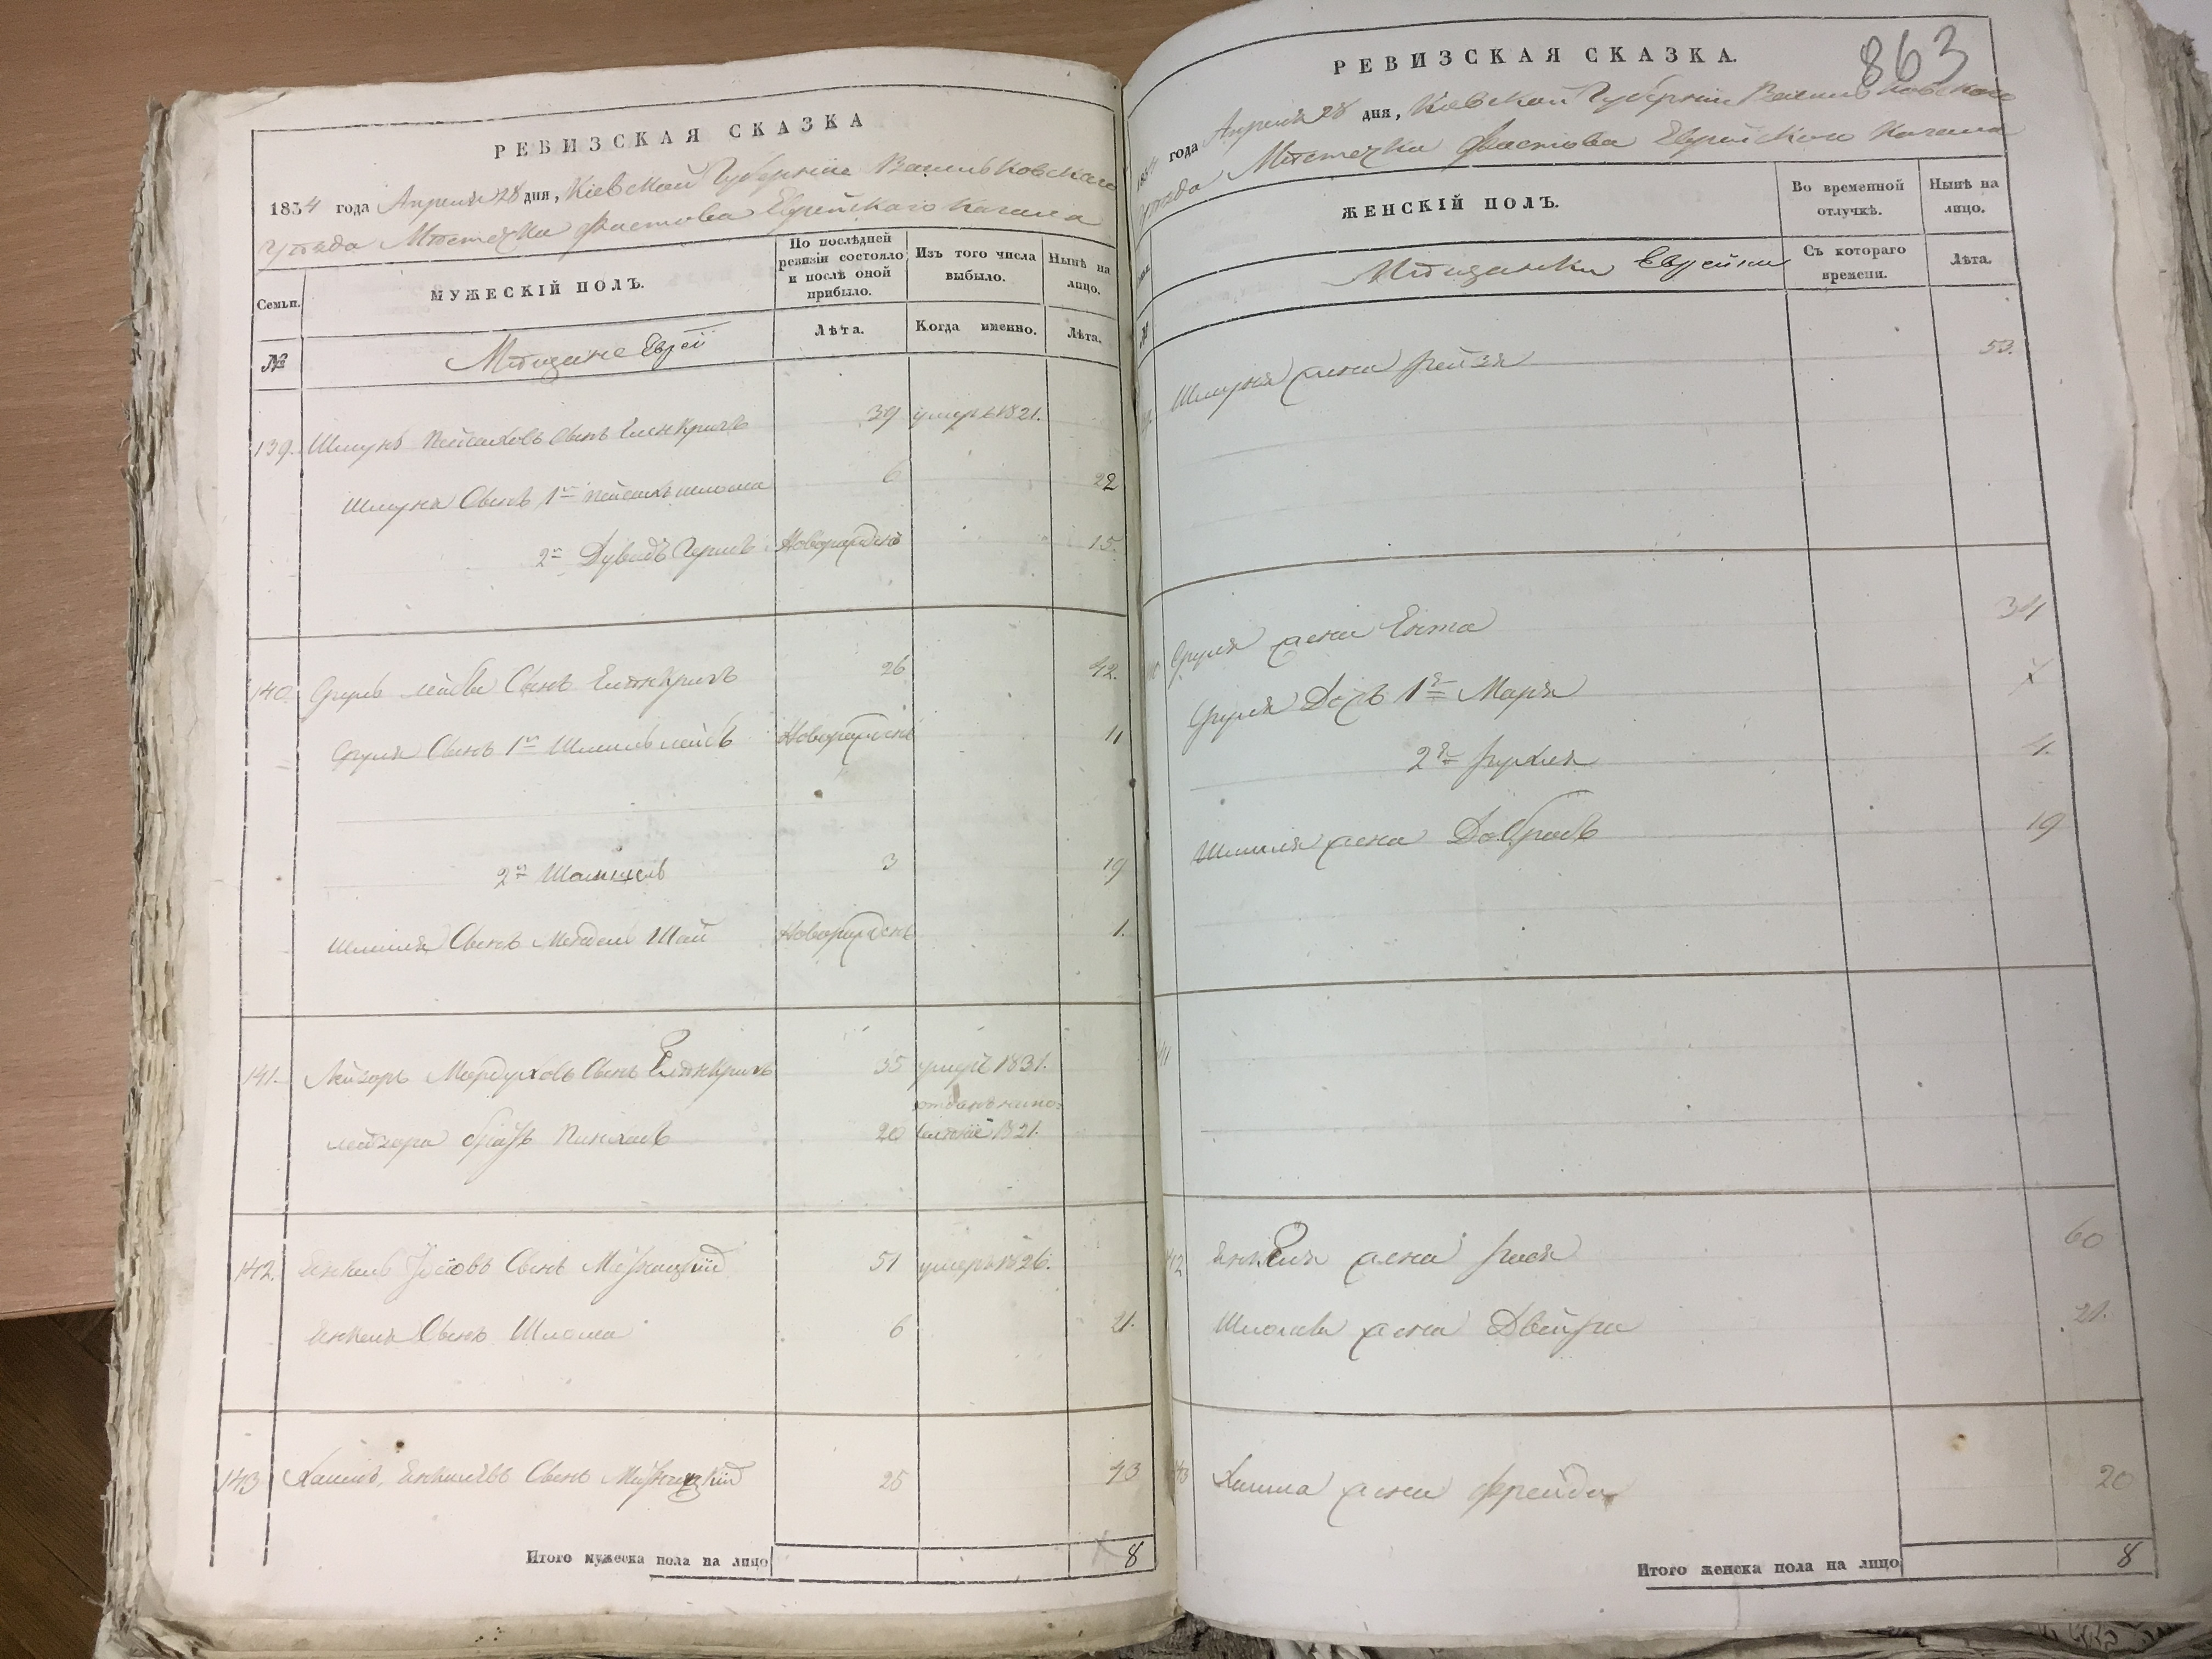 РЕВИЗСКАЯ СКАЗКА
1834 года Апреля 28 дня, Кіевской Губерніи Васильковскаго
уѣзда Мѣстечка Фастова Еврейскаго Кагала
Семьи.
МУЖЕСКІЙ ПОЛЪ.
По послѣдней ревизіи состояло и послѣ оной прибыло.
Изъ того числа выбыло.
Нынѣ на лицо.
№
Мѣщане Евреи
Лѣта.
Когда именно.
Лѣта.
139. Шмунъ Пейсаховъ Сынъ 39 умеръ 1821.
Шмуна Сынъ 1й Пейсахъ Шлома 6 22
2й Дувидъ Гершъ Новорожденъ 15.
140. Сруль Лейбы Сынъ 26 42.
Сруля Сынъ 1й Шмиль Лейбъ Новорожденъ 11
2й 3 19
Шмиля Сынъ Мендель Шая Новорожденъ 1.
141. Лейзоръ Мордуховъ Сынъ 35 умеръ 1831.
Лейзора братъ Пинхасъ 20 1821.
142. Янкель Сынъ 51 умеръ 1826.
Янкеля Сынъ Шлома 6 21.
143 Хаимъ Янкелевъ Сынъ 25
Итого мужеска пола на лицо 8
863
РЕВИЗСКАЯ СКАЗКА.
года Апреля 28 дня, Кіевской Губерніи Васильковскаго
уѣзда Мѣстечка Фастова Еврейскаго Кагала
ЖЕНСКІЙ ПОЛЪ.
Во временной отлучкѣ.
Нынѣ на лицо.
Мѣщанки Еврейки
Съ котораго времени.
Лѣта.
Шмуня жена Рейзя 53.
Сруля жена Ента 34
Сруля Дочь 1я Маря
2я Рухля 4.
Шмиля жена 19
142 Янкеля жена Рася 60
Шломы жена Двейра 21.
143 Хаима жена Фрейда 20
Итого женска пола на лицо 8